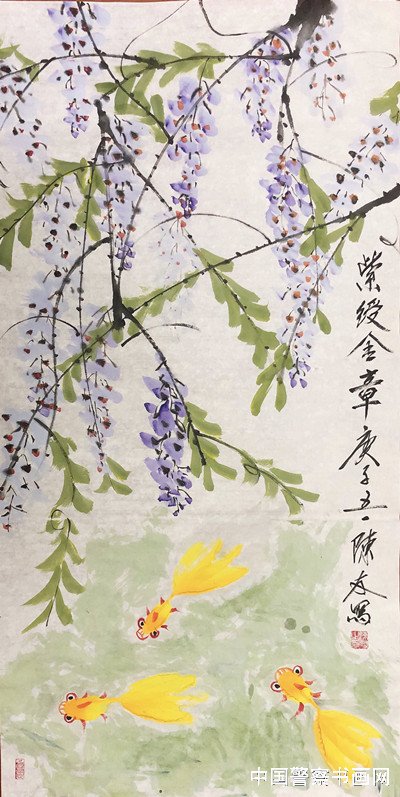 紫绶金章 庚子五一 陳友写
中国警察书画网